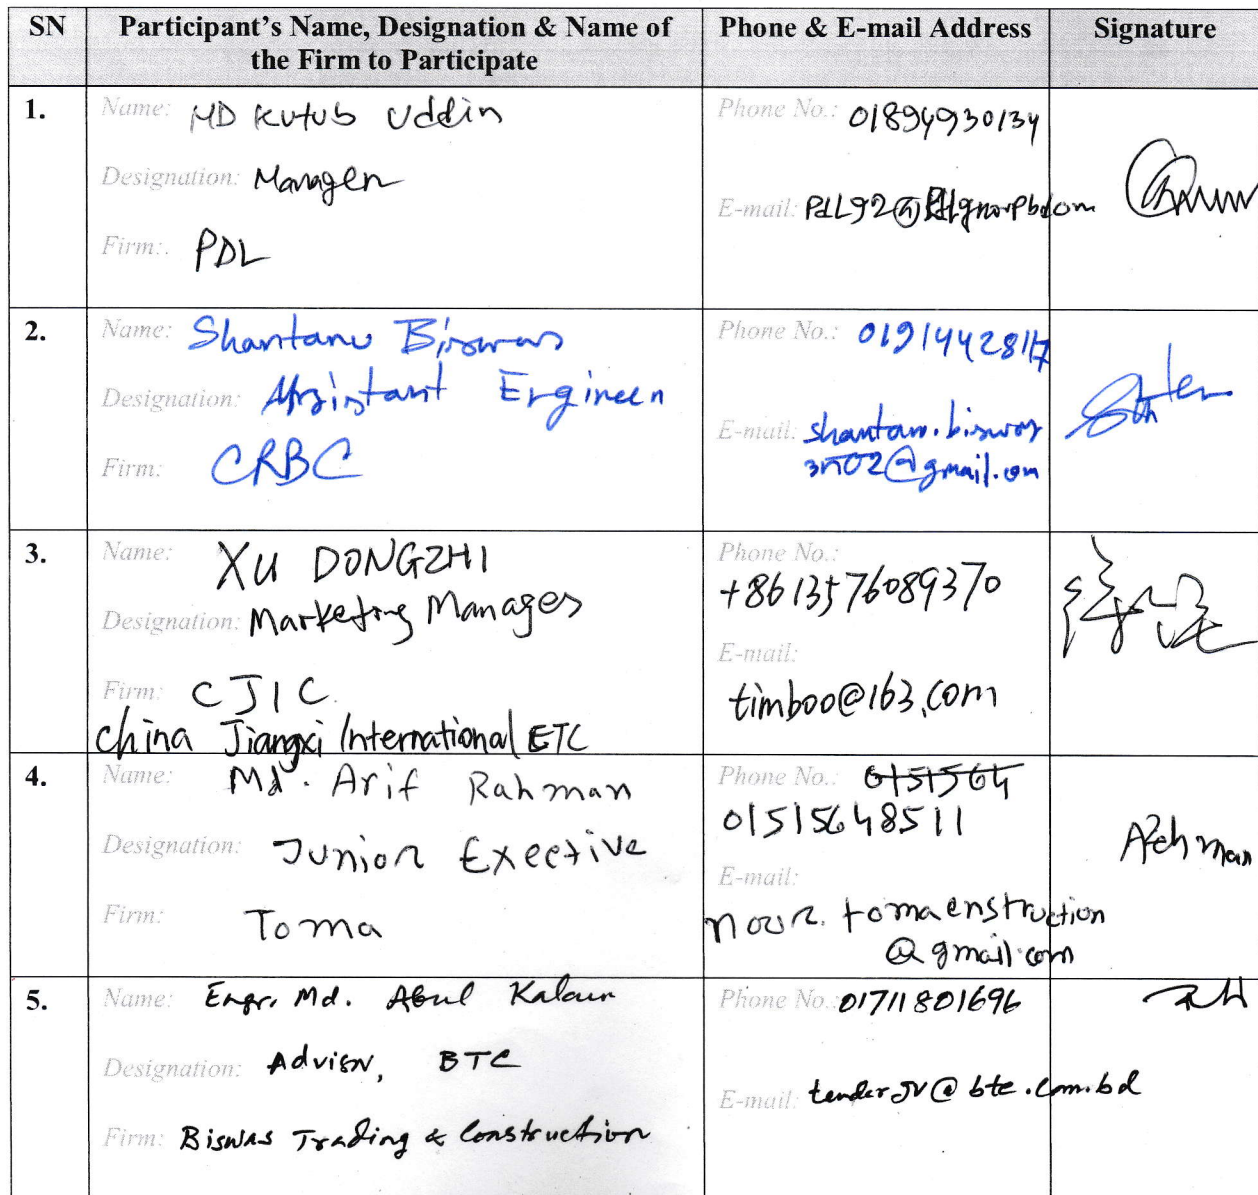 SN Participant's Name, Designation & Name of the Firm to Participate Phone & E-mail Address Signature
1.
Name: MD Kutub Uddin
Designation: Manager
Firm:. PDL
Phone No.: 01894930134
E-mail:
2.
Name: Shantanu Biswas
Designation: Assistant Engineer
Firm: CRBC
Phone No.:
E-mail:
@gmail.com
3.
Name: XU DONGZHI
Designation: Marketing Manager
Firm: CJIC
China Jiangxi International ETC
Phone No.:
+8613576089370
E-mail:
timboo@163.com
4.
Name: Md. Arif Rahman
Designation: Junior Exective
Firm: Toma
Phone No.: 0151564
01515648511
E-mail:
nour.tomaenstruction
@gmail.com
Rahman
5.
Name: Engr. Md. Abul Kalam
Designation: Advisor, BTC
Firm: Biswas Trading & Construction
Phone No.: 01711801696
E-mail: tenderJV@btc.com.bd